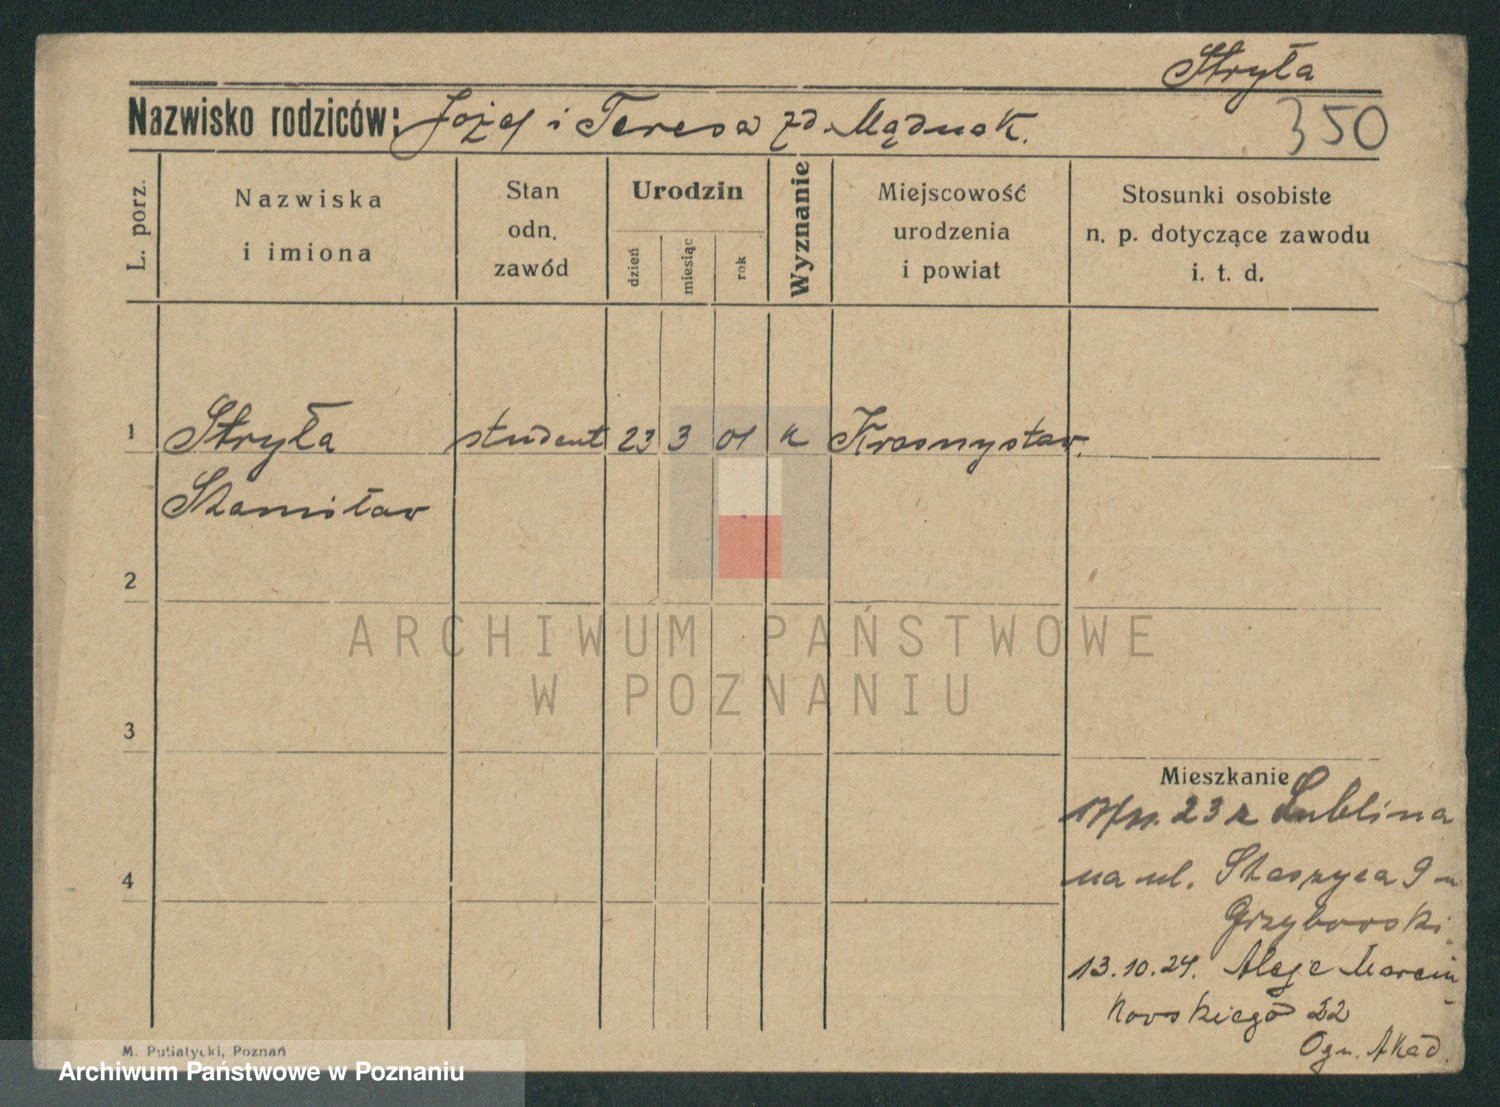 Stryła
Nazwisko rodziców: Józef i Teresa zd. Mądnok.
350
L. porz.
Nazwiska
i imiona
Stan
odn.
zawód
Urodzin
dzień
miesiąc
rok
Wyznanie
Miejscowość
urodzenia
i powiat
Stosunki osobiste
n. p. dotyczące zawodu
i. t. d.
1 Stryła student 23 3 01 k Krasnystaw.
Stanisław
2
3
4
Mieszkanie
23 z Lublina
na ul. Staszyca 9 u
Grzybowski.
13.10.24. Aleje Marcin
kowskiego 22
Ogn. Akad.
M. Putiatycki, Poznań
ARCHIWUM PAŃSTWOWE
W POZNANIU
Archiwum Państwowe w Poznaniu